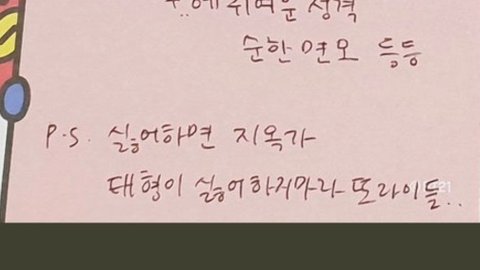 귀여운 성격
순한 면모 등등
P.S. 싫어하면 지옥가
태형이 싫어하지마라 또라이들..